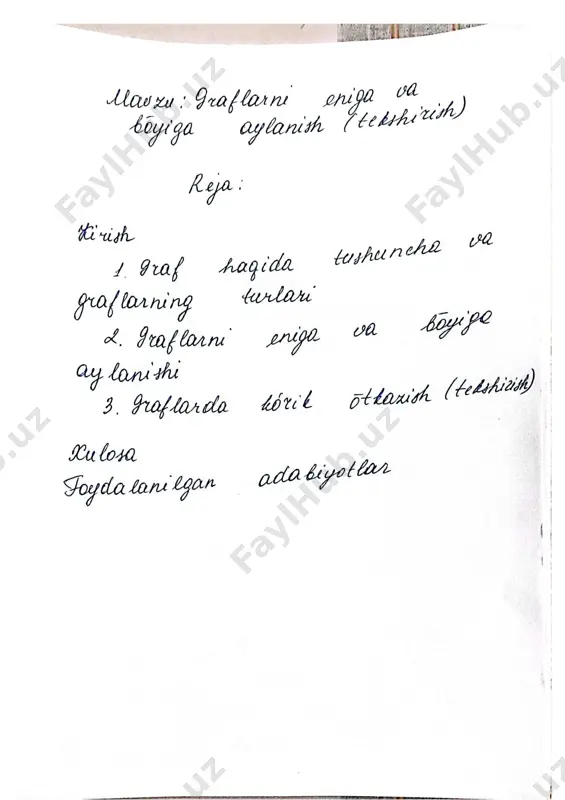 Mavzu: Graflarni eniga va
bōyiga aylanish (tekshirish)
Reja:
Kirish
1. Graf haqida tushuncha va
graflarning turlari
2. Graflarni eniga va bōyiga
aylanishi
3. Graflarda kórik ōtkazish (tekshirish)
Xulosa
Foydalanilgan adabiyotlar
FaylHub.uz
FaylHub.uz
FaylHub.uz
FaylHub.uz
b.uz
.uz
.uz
uz